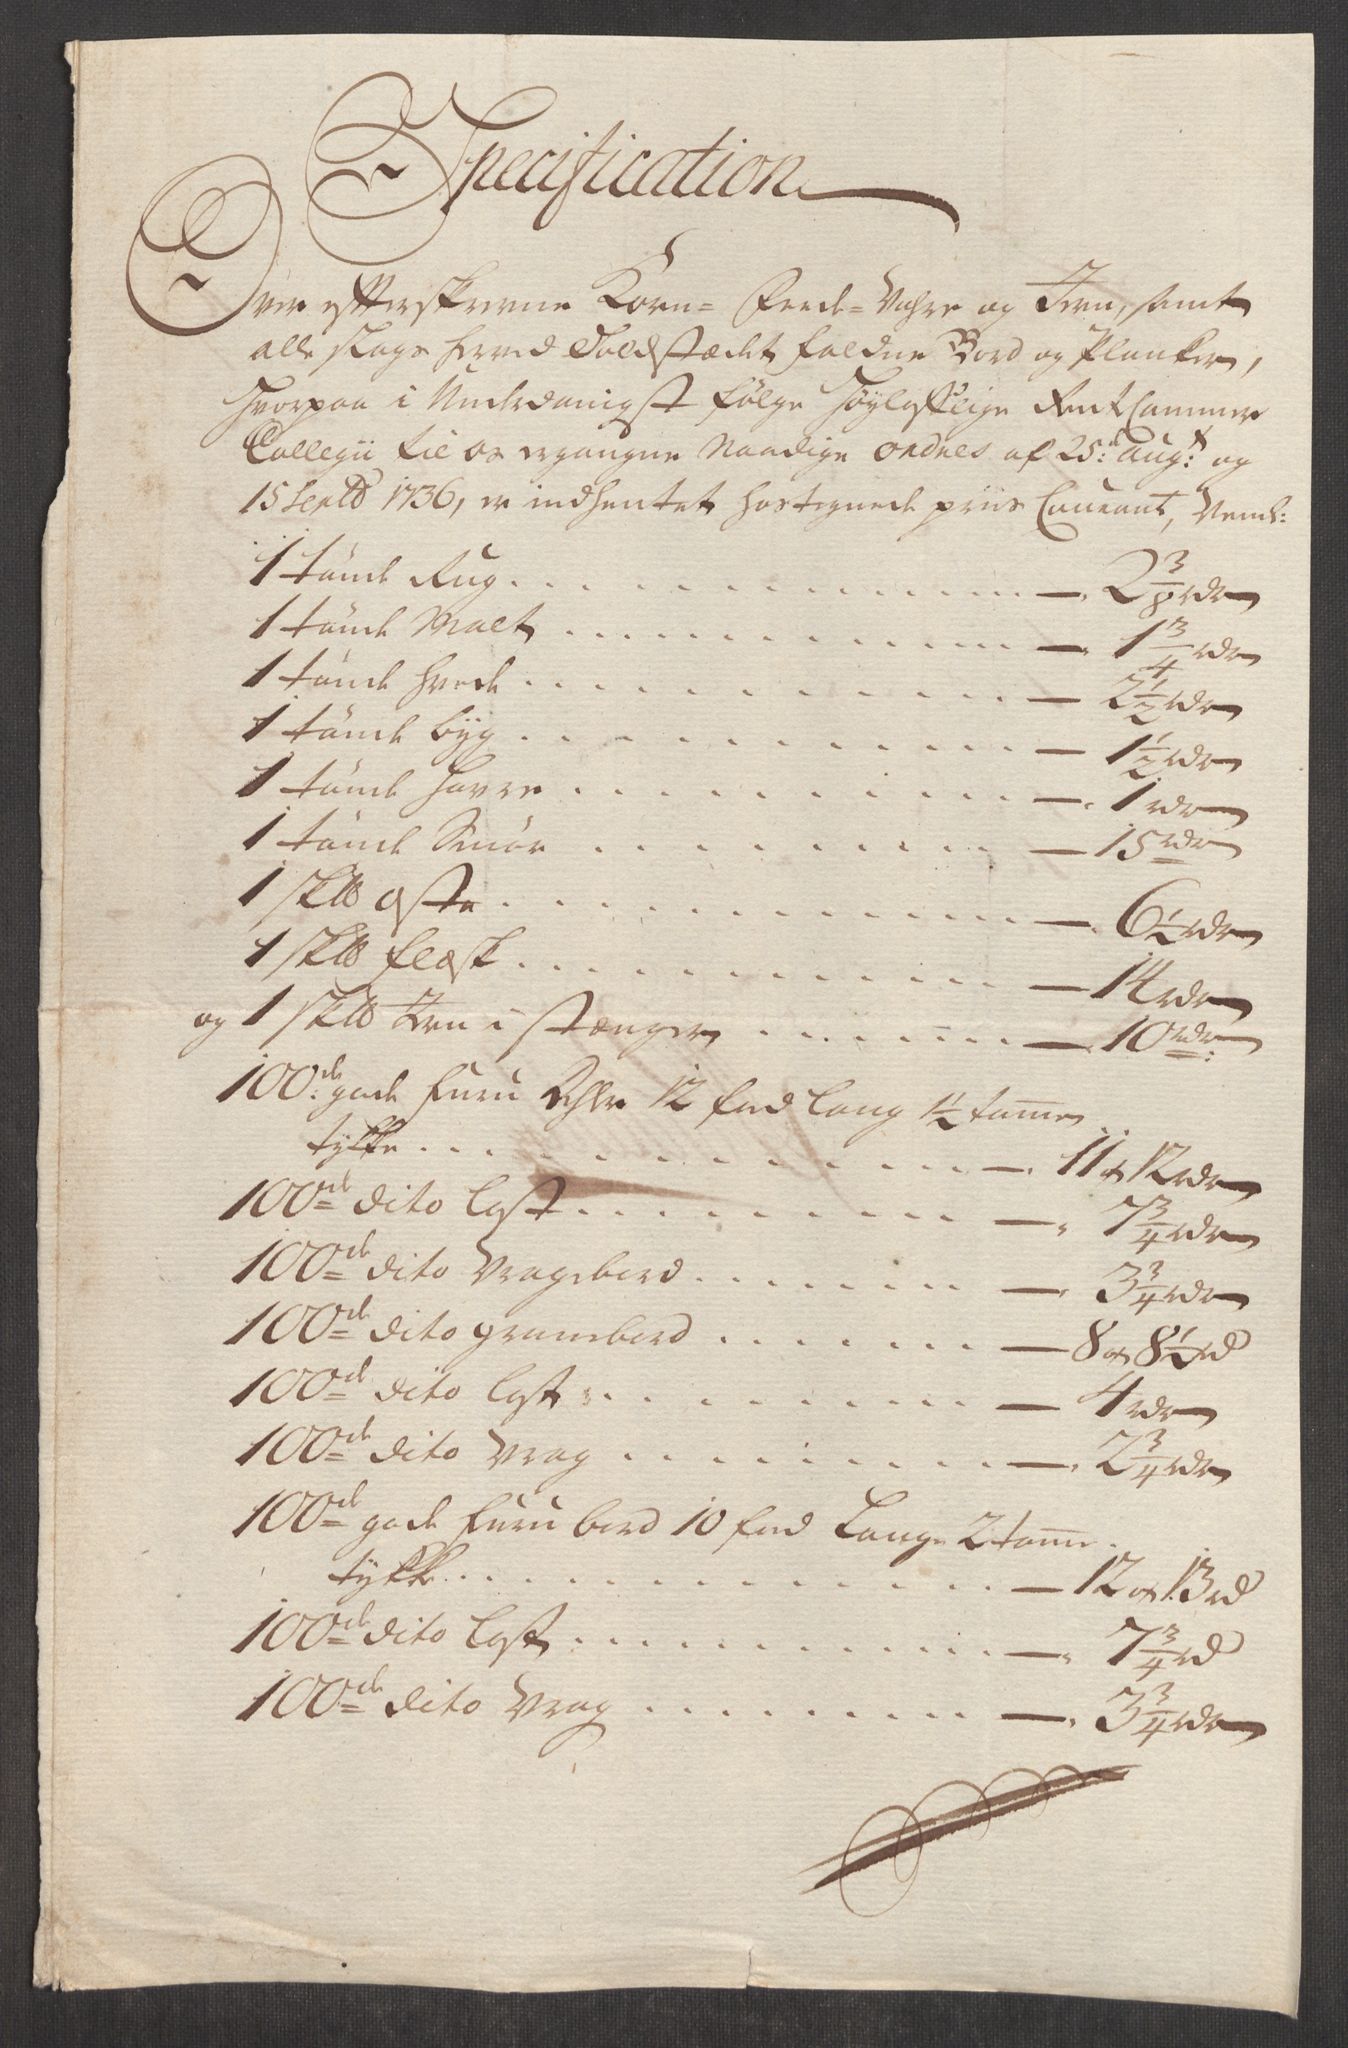 Specification
Over efterskrevne Korn- Feede-Vahre og Jern, samt
alle slags herved Toldstædet faldne Bord og Planker,
Hvorpaa i Underdanigst følge Høylofflige Rent Cammer
Collegii til os ergangne Naadige Ordres af 25: Aug: og
15 Septb 1736, er indhentet hostegnede priis Courant, Nemb:
1 tönde Rug . . . 2 3/8 rdr
1 tönde Malt . . . 1 3/4 rdr
1 tönde hvede . . . 2 1/2 rdr
1 tönde byg . . . 1 1/2 rdr
1 tönde Havre . . . 1 rdr
1 tönde Smör . . . 15 rdr
1 Sk℔ oste . . . 6 1/2 rdr
1 Sk℔ flesk . . . 14 rdr
og 1 Sk℔ Jern i Stænger . . . 10 rdr:
100de gode furu Dehler 12 fod lang 1 1/2 tomme
tykke . . . 11 a 12 rdr
100de dito Lest . . . 7 3/4 rdr
100de dito Vragebord . . . 3 3/4 rdr
100de dito granebord . . . 8 a 8 1/2 rd
100de dito lest . . . 4 rdr
100de dito Vrag . . . 2 3/4 rdr
100de gode furu bord 10 fod Lange 2 tomme
tykke . . . 12 a 13 rd
100de dito lest . . . 7 3/4 rd
100de dito Vrag . . . 3 3/4 rdr